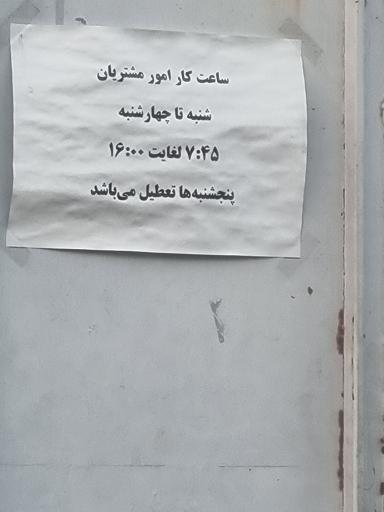 ساعت کار امور مشتریان
شنبه تا چهارشنبه
۷:۴۵ لغایت ۱۶:۰۰
پنجشنبه‌ها تعطیل می‌باشد